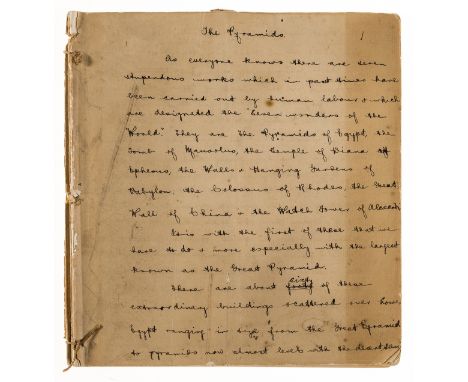 The Pyramids. 1
As everyone knows there are seven
stupendous works which in past times have
been carried out by human labour & which
are designated the "Seven wonders of the
World." They are The Pyramids of Egypt, the
Tomb of Mausolus, the Temple of Diana
Ephesus, the Walls & Hanging Gardens of
Babylon, the Colossus of Rhodes, the Great
Wall of China & the Watch Tower of
It is with the first of these that we
have to do & more especially with the largest
known as the Great Pyramid.
There are about sixty of these
extraordinary buildings scattered over Lower
Egypt ranging in size from the Great Pyramid
to pyramids now almost level with the desert